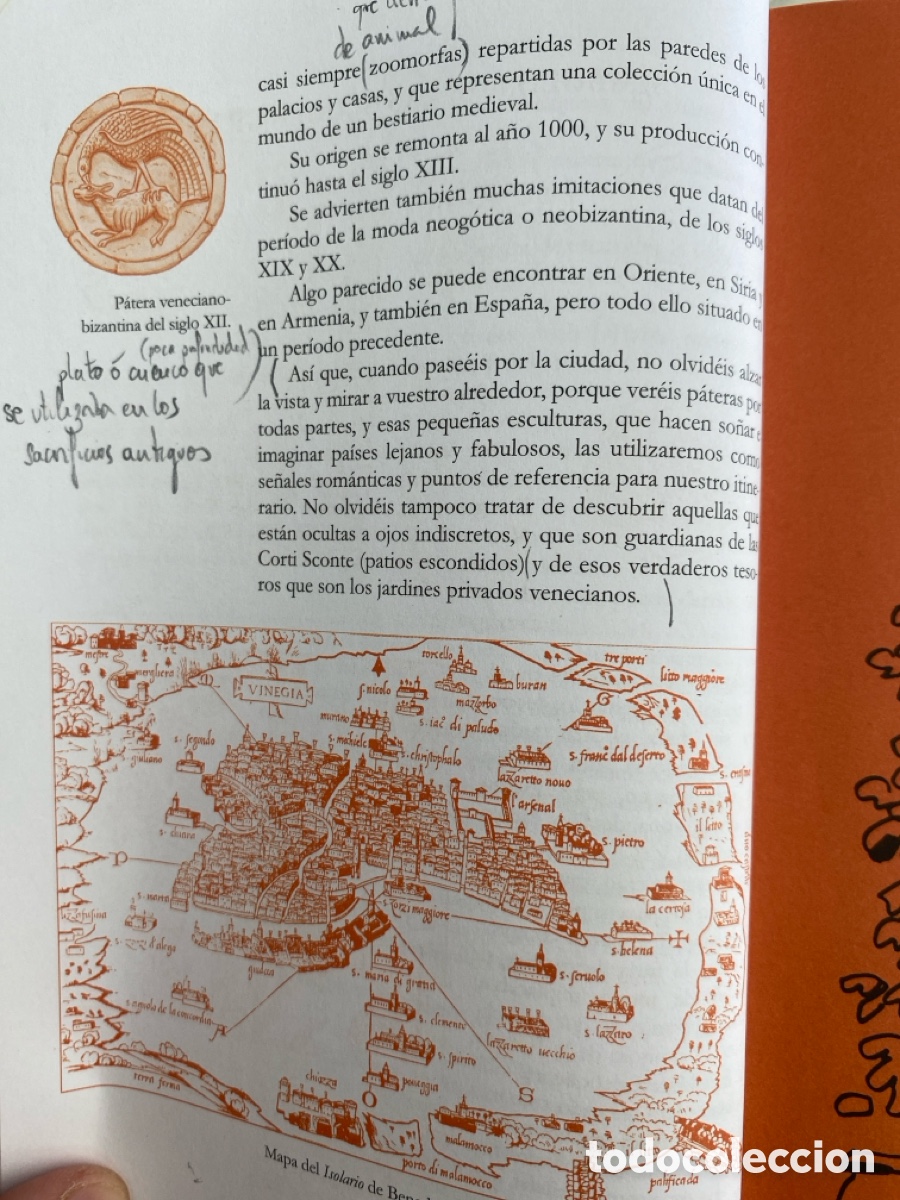 que
de animal
casi siempre (zoomorfas) repartidas por las paredes de los
palacios y casas, y que representan una colección única en el
mundo de un bestiario medieval.
Su origen se remonta al año 1000, y su producción con-
tinuó hasta el siglo XIII.
Se advierten también muchas imitaciones que datan del
período de la moda neogótica o neobizantina, de los siglos
XIX y XX.
Algo parecido se puede encontrar en Oriente, en Siria y
en Armenia, y también en España, pero todo ello situado en
un período precedente.
(Así que, cuando paseéis por la ciudad, no olvidéis alzar
la vista y mirar a vuestro alrededor, porque veréis páteras por
todas partes, y esas pequeñas esculturas, que hacen soñar e
imaginar países lejanos y fabulosos, las utilizaremos como
señales románticas y puntos de referencia para nuestro itine-
rario. No olvidéis tampoco tratar de descubrir aquellas que
están ocultas a ojos indiscretos, y que son guardianas de las
Corti Sconte (patios escondidos)(y de esos verdaderos teso-
ros que son los jardines privados venecianos. )
Pátera veneciano-
bizantina del siglo XII.
(poca profundidad)
plato ó cuenco que
se utilizaba en los
sacrificios antiguos
mestre
VINEGIA
s. nicolo
torcello
buran
mazzorbo
tre porti
litto maggiore
murano
s. iac° di paludo
s. michiele
s. christophalo
s. segondo
s. giuliano
lazaretto nouo
s. franc° dal deserro
s. erasmo
l'arsenal
il litto
s. pietro
s. chiara
P
s. marta
s. zorzi maggiore
la certoja
s. helena
lizzafusina
gudeca
s. maria di gratia
s. seruolo
s. clemento
s. lazzaro
s. spirito
lazaretto uecchio
A
poueggia
O
S
terra ferma
chiozza
malamocco
porto di malamocco
palificada
Mapa del Isolario de
todocoleccion